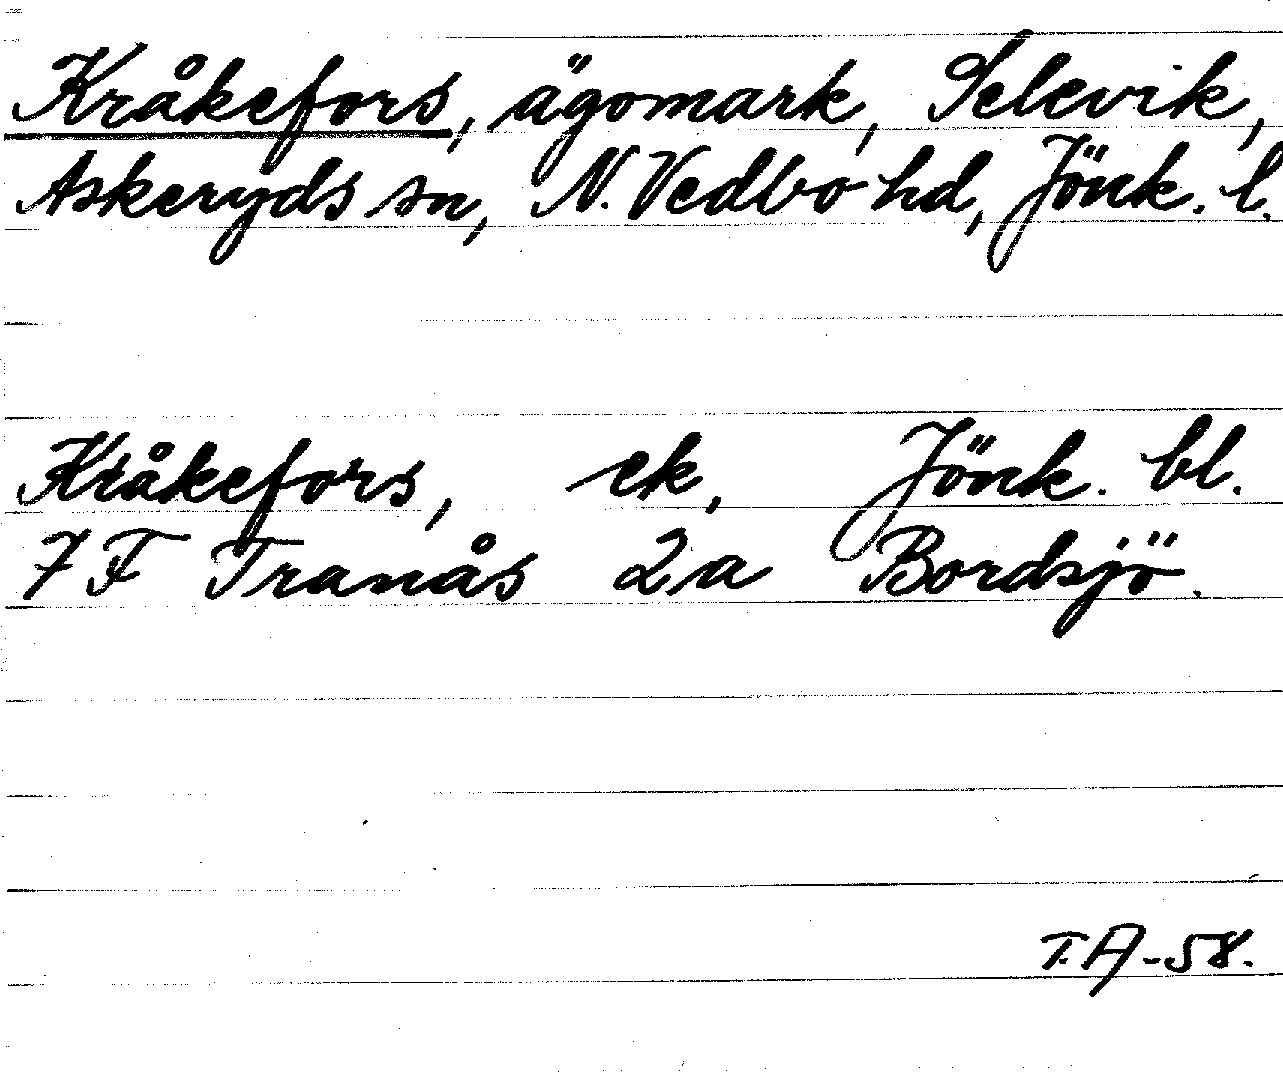 Kråkefors, ägomark, Selevik,
Askeryds sn, N. Vedbo hd, Jönk. l.
Kråkefors, ek, Jönk. bl.
7 F Tranås 2a Bordsjö.
T.A-58.